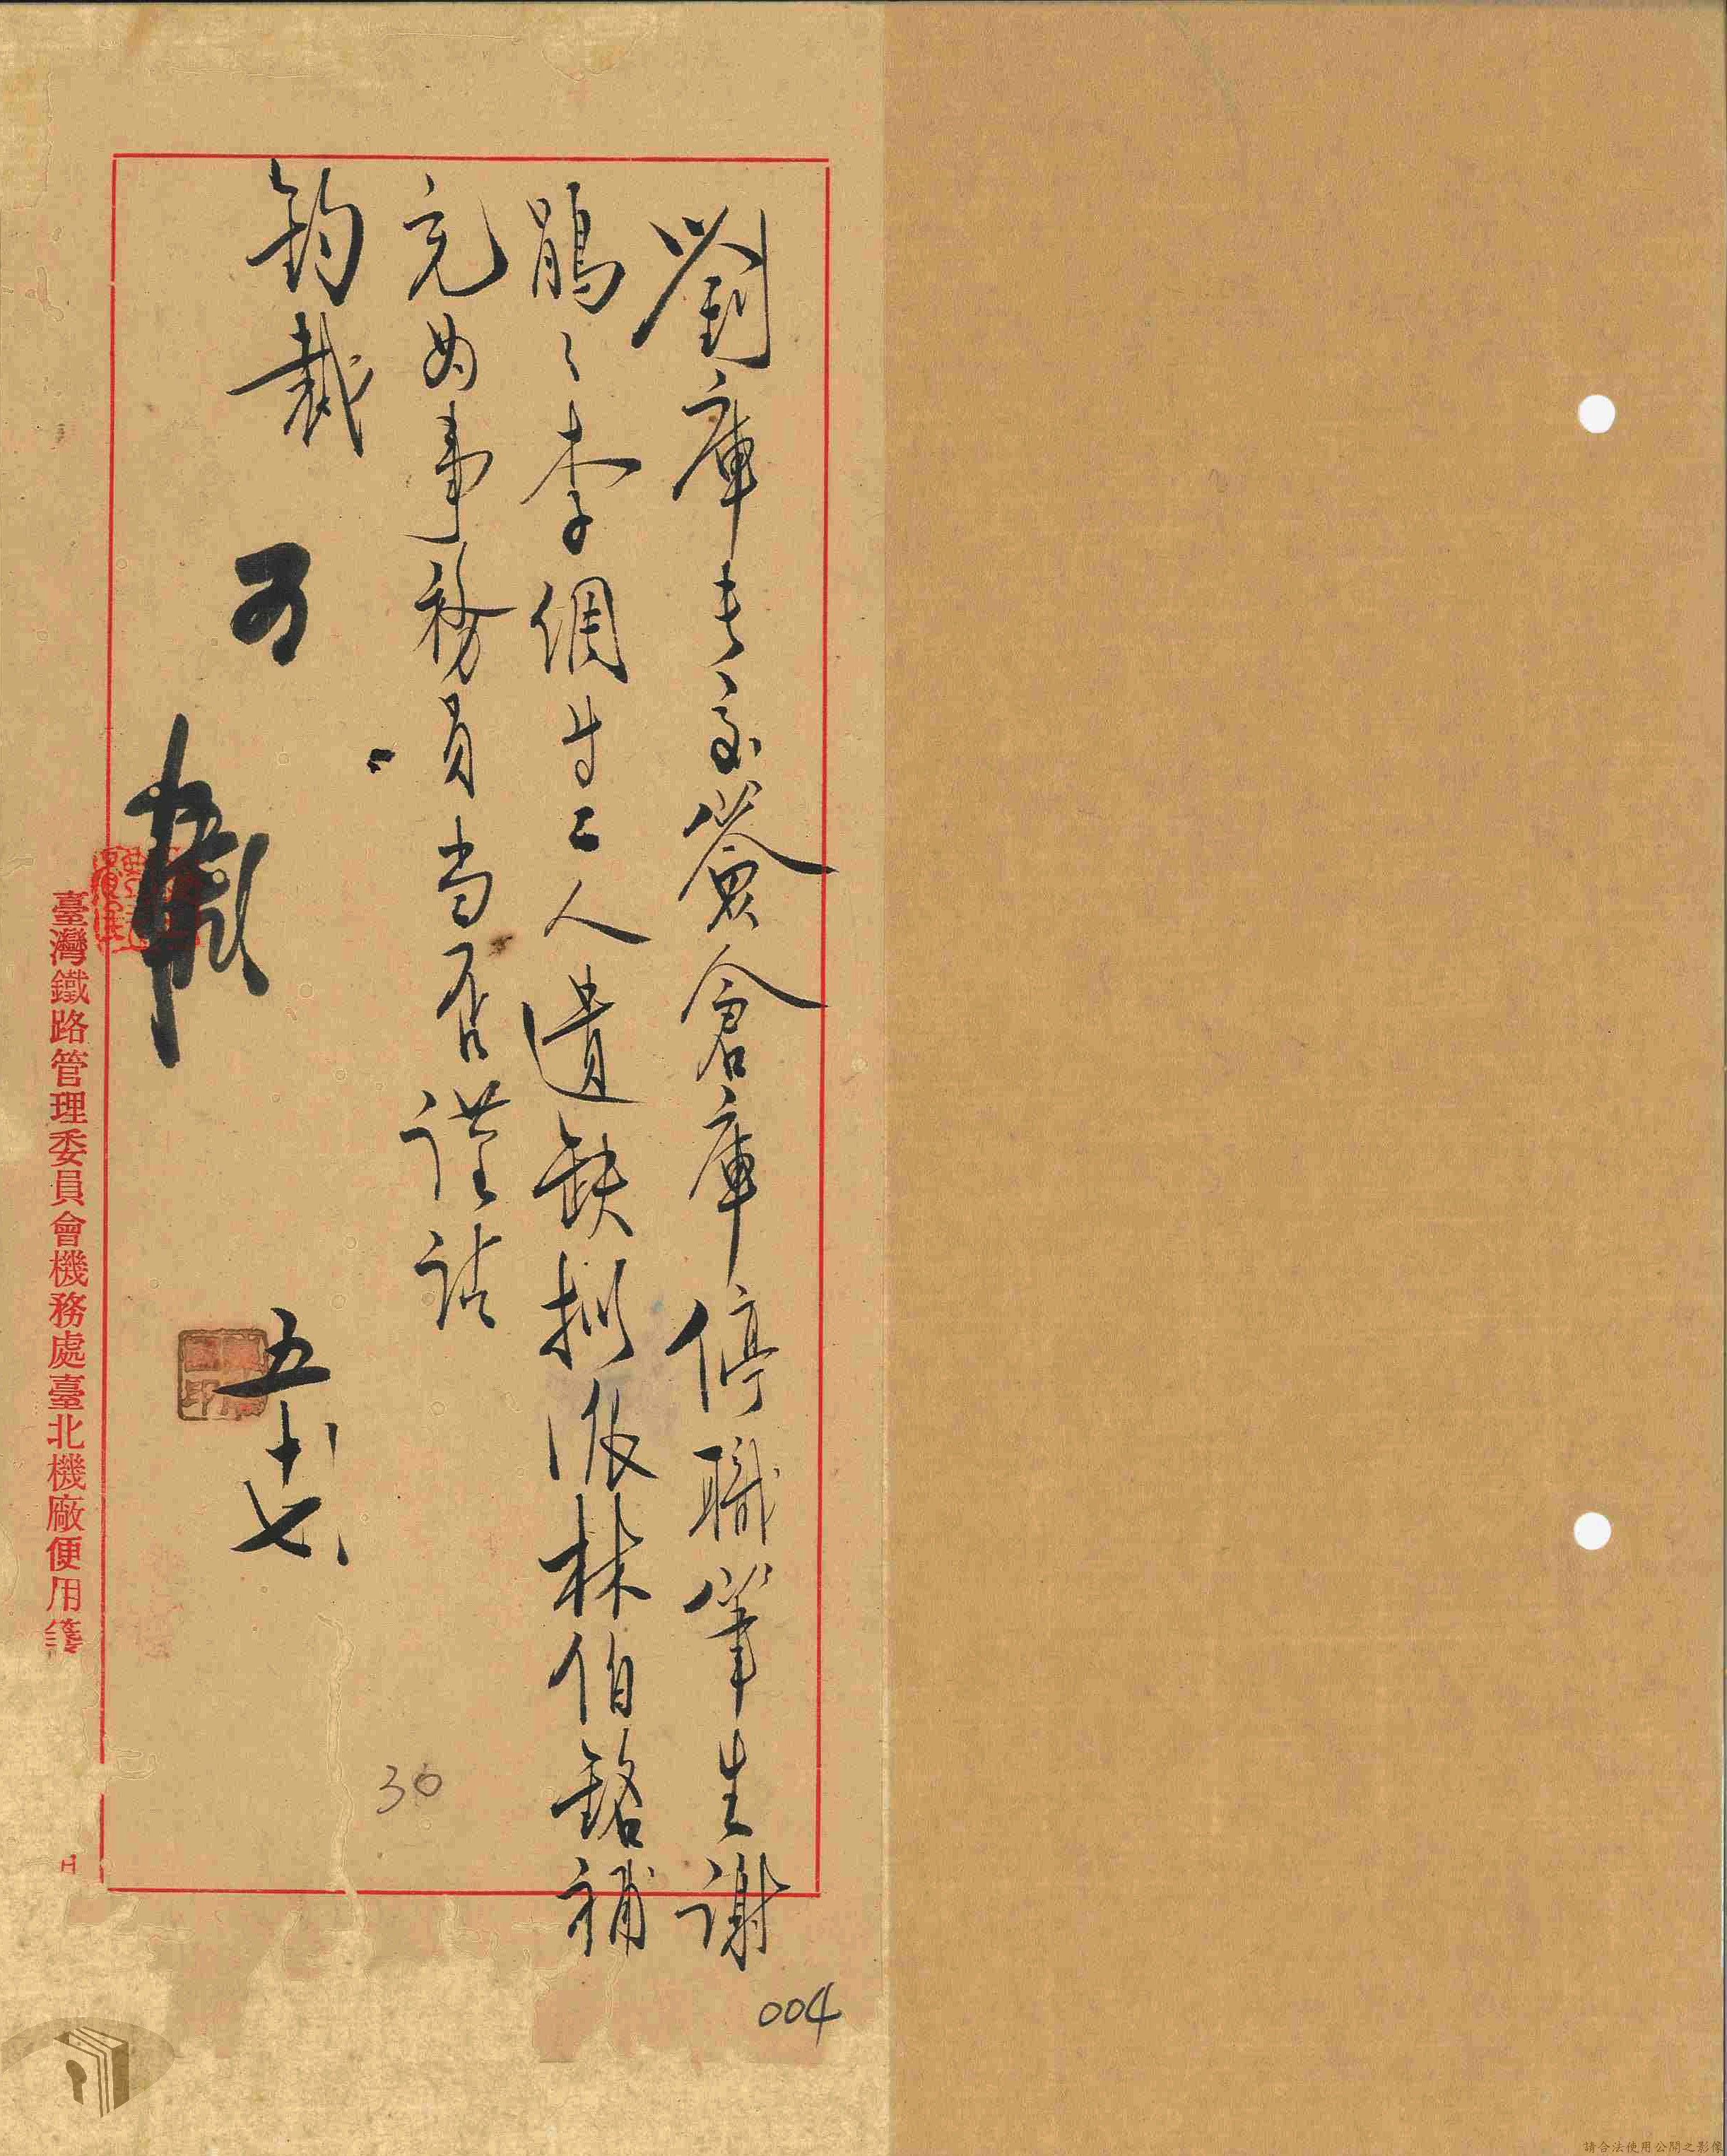 劉庫長玉簽倉庫停職筆生謝
鵑々李倜生二人遺缺擬派林伯銘補
充为事務員当否謹請
鈞裁
可
五十七
臺灣鐵路管理委員會機務處臺北機廠便用箋
30
004
請合法使用公開之影像